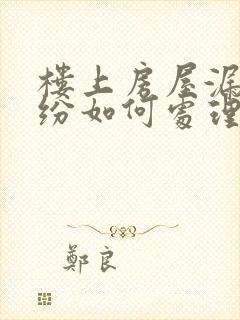 樓上房屋漏
紛如何處理
鄭良